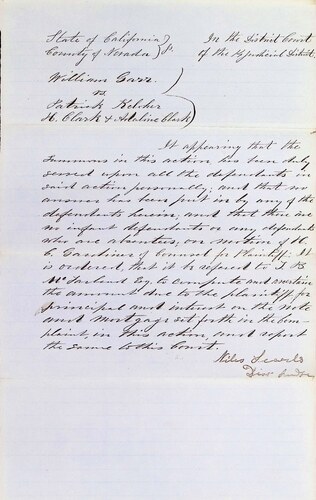 State of California } In the District Court
County of Nevada } ss. of the Judicial District
William Carr
vs
Patrick Kelcher
H. Clark & Adaline Clark
It appearing that the
summons in this action has been duly
served upon all the defendants in
said action personally, and that no
answer has been put in by any of the
defendants herein, and that there are
no infant defendants or any defendants
who are absentees, on motion of H.
C. Gardiner of Counsel for Plaintiff: It
is ordered, that it be referred to J B
McFarland Esq. to compute and ascertain
the amount due to the plaintiff for
principal and interest on the note
and mortgage set forth in the com
plaint, in this action, and report
the same to this Court.
Niles Searls
Dist Judge